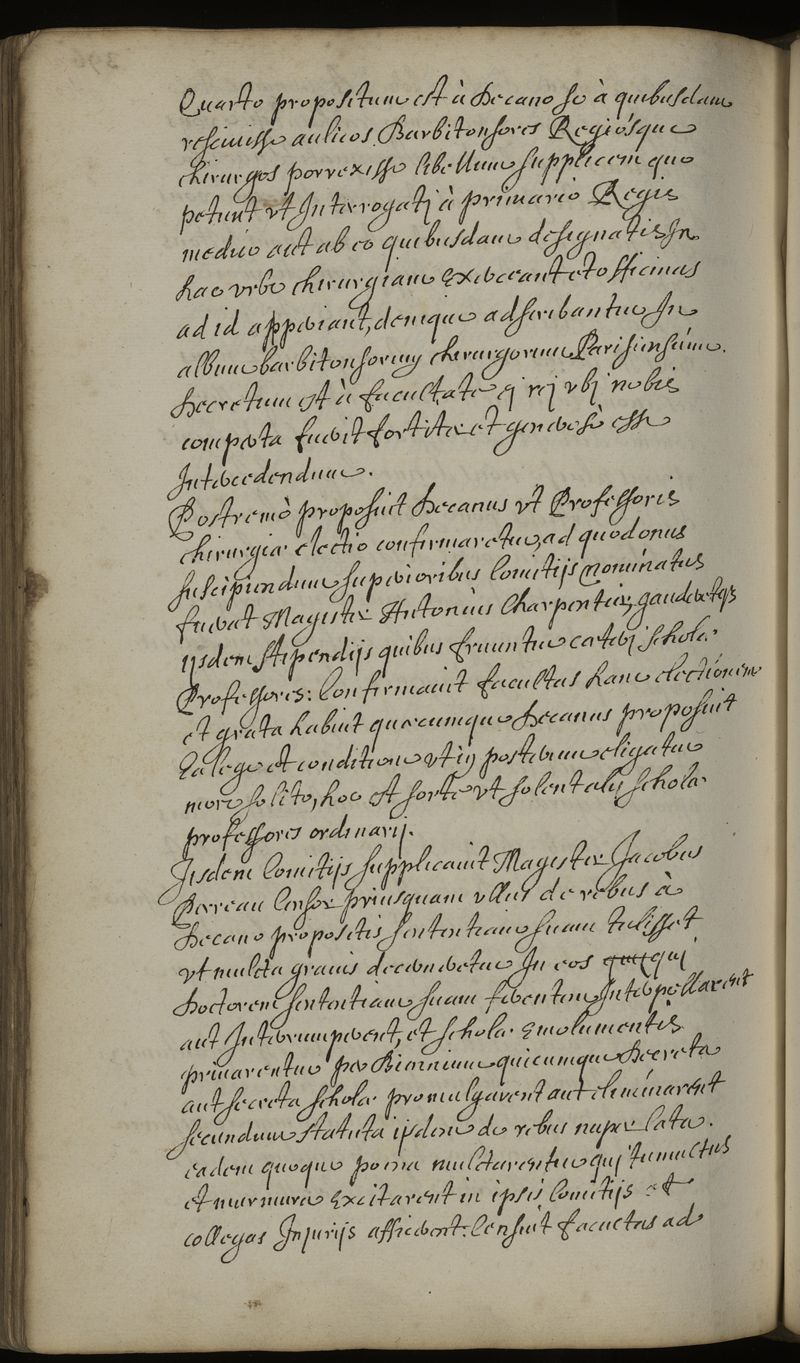 Quarto propositum est à Decano se à quibusdam
rescivisse aulicos Barbitonsores Regiósque
chirurgos porrexisse libellum supplicem quo
petunt vt Interrogatj à primario Regis
medico aut ab eo quibusdam designatis In
hac vrbe chirurgiam exerceant et officinas
ad id apperiant, denique adscribantur In
album barbitonsorum chirurgorum Parisiensium.
Decretum est à facultate ej rej vbj nobis
comperta fuerit fortiter et generosè esse
Intercedendum.
Postremò proposuit Decanus vt Professoris
chirurgiæ electio confirmaretur, ad quod onus
suscipiendum superioribus Comitijs nominatus
fuerat Magister Antonius Charpentier, gauderetqs
ijsdem stipendijs quibus fruuntur cæterj scholæ
Professores: Confirmavit facultas hanc electionem
et grata habuit quæcumque Decanus proposuit
Ea lege et conditione vt in posterum eligatur
more solito, hoc est sorte vt solent alij scholæ
professores ordinarij.
Iisdem Comitijs supplicavit Magister Jacobus
Perreau Censor priusquam vllus de rebus à
Decano propositis sententiam suam tulisset
vt mulcta gravis decerneretur In eos quij quj
Doctorem sententiam suam ferentem Interpellarent
aut Interrumperent, et scholæ emolumentis
privarentur per Biennium quicumque Decreta
aut secreta scholæ promulgarent aut eliminarent
secundum statuta ijsdem de rebus nuper lata.
eadem quoque poena mulctarentur quj tumultus
et murmura excitarent in ipsis Comitijs et
collegas Injurijs afficerent: Censuit facultas ad